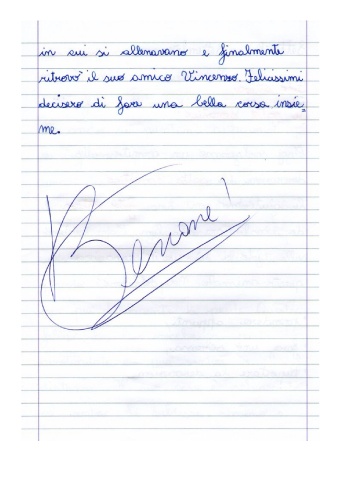 in cui si allenavano e finalmente
ritrovò il suo amico Vincenzo. Felicissimi
decisero di fare una bella corsa insie_
me.
Benone!